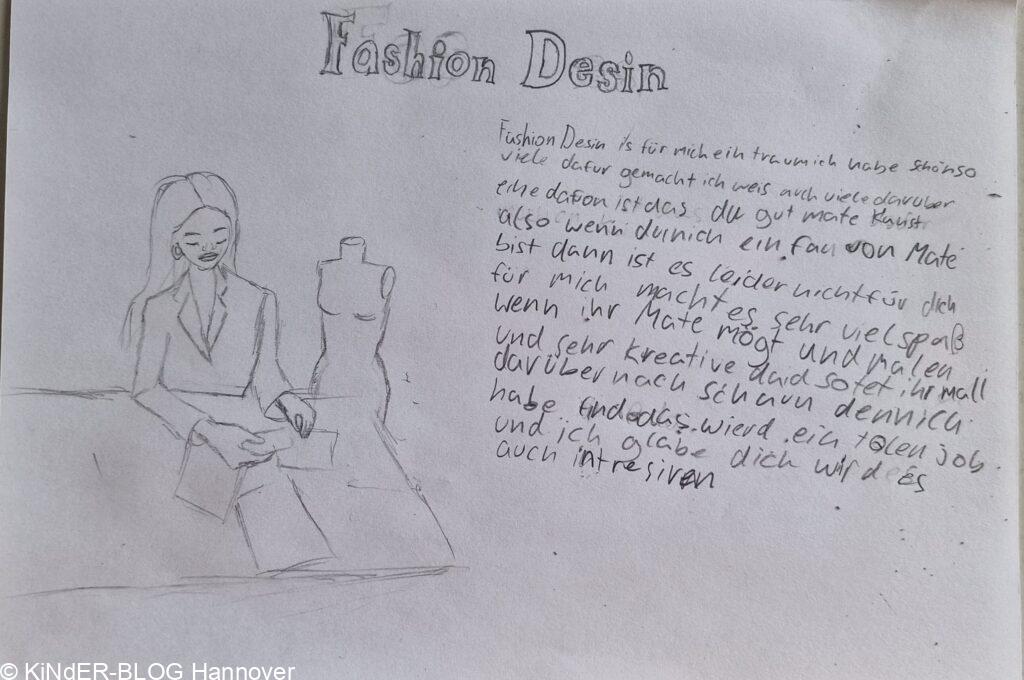 Fashion Desin
Fashion Desin is für mich ein traum ich habe schonso
viele dafur gemacht ich weis auch viele darüber
eine dafon ist das du gut mate Kunst
also wenn du nich ein fan von Mate
bist dann ist es leider nicht für dich
für mich macht es sehr viel spaß
wenn ihr Mate mögt und malen
und sehr kreative daid sotet ihr mall
darüber nach schaun dennich
habe finde das wierd ein tolen job.
und ich glabe dich wird es
auch intresiren
© KiNdER-BLOG Hannover